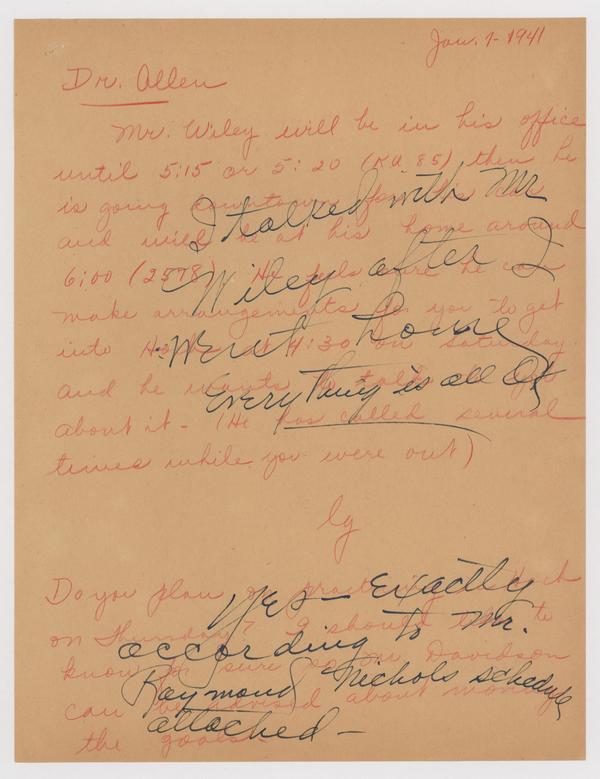 Jan. 7-1941
Dr. Allen
Mr. Wiley will be in his office
until 5:15 or 5:20 (KU 85) then he
is going downtown for his car
and will be at his home around
6:00 (2578). He feels sure he can
make arrangements for you to get
into at 4:30 on Saturday
and he wants to talk to you
about it - (He has called several
times while you were out)
lg
Do you plan on practicing
on Thursday? I should like to
know for sure so Davidson
can be advised about moving
the goals.
I talked with Mr
Wiley after I
went home
Everything is all OK
Yes - Exactly
according to Mr.
Raymond Nichols schedule
attached -